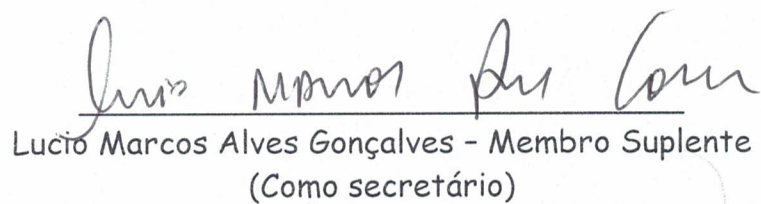 Lucio Marcos Alves Gonçalves – Membro Suplente
(Como secretário)